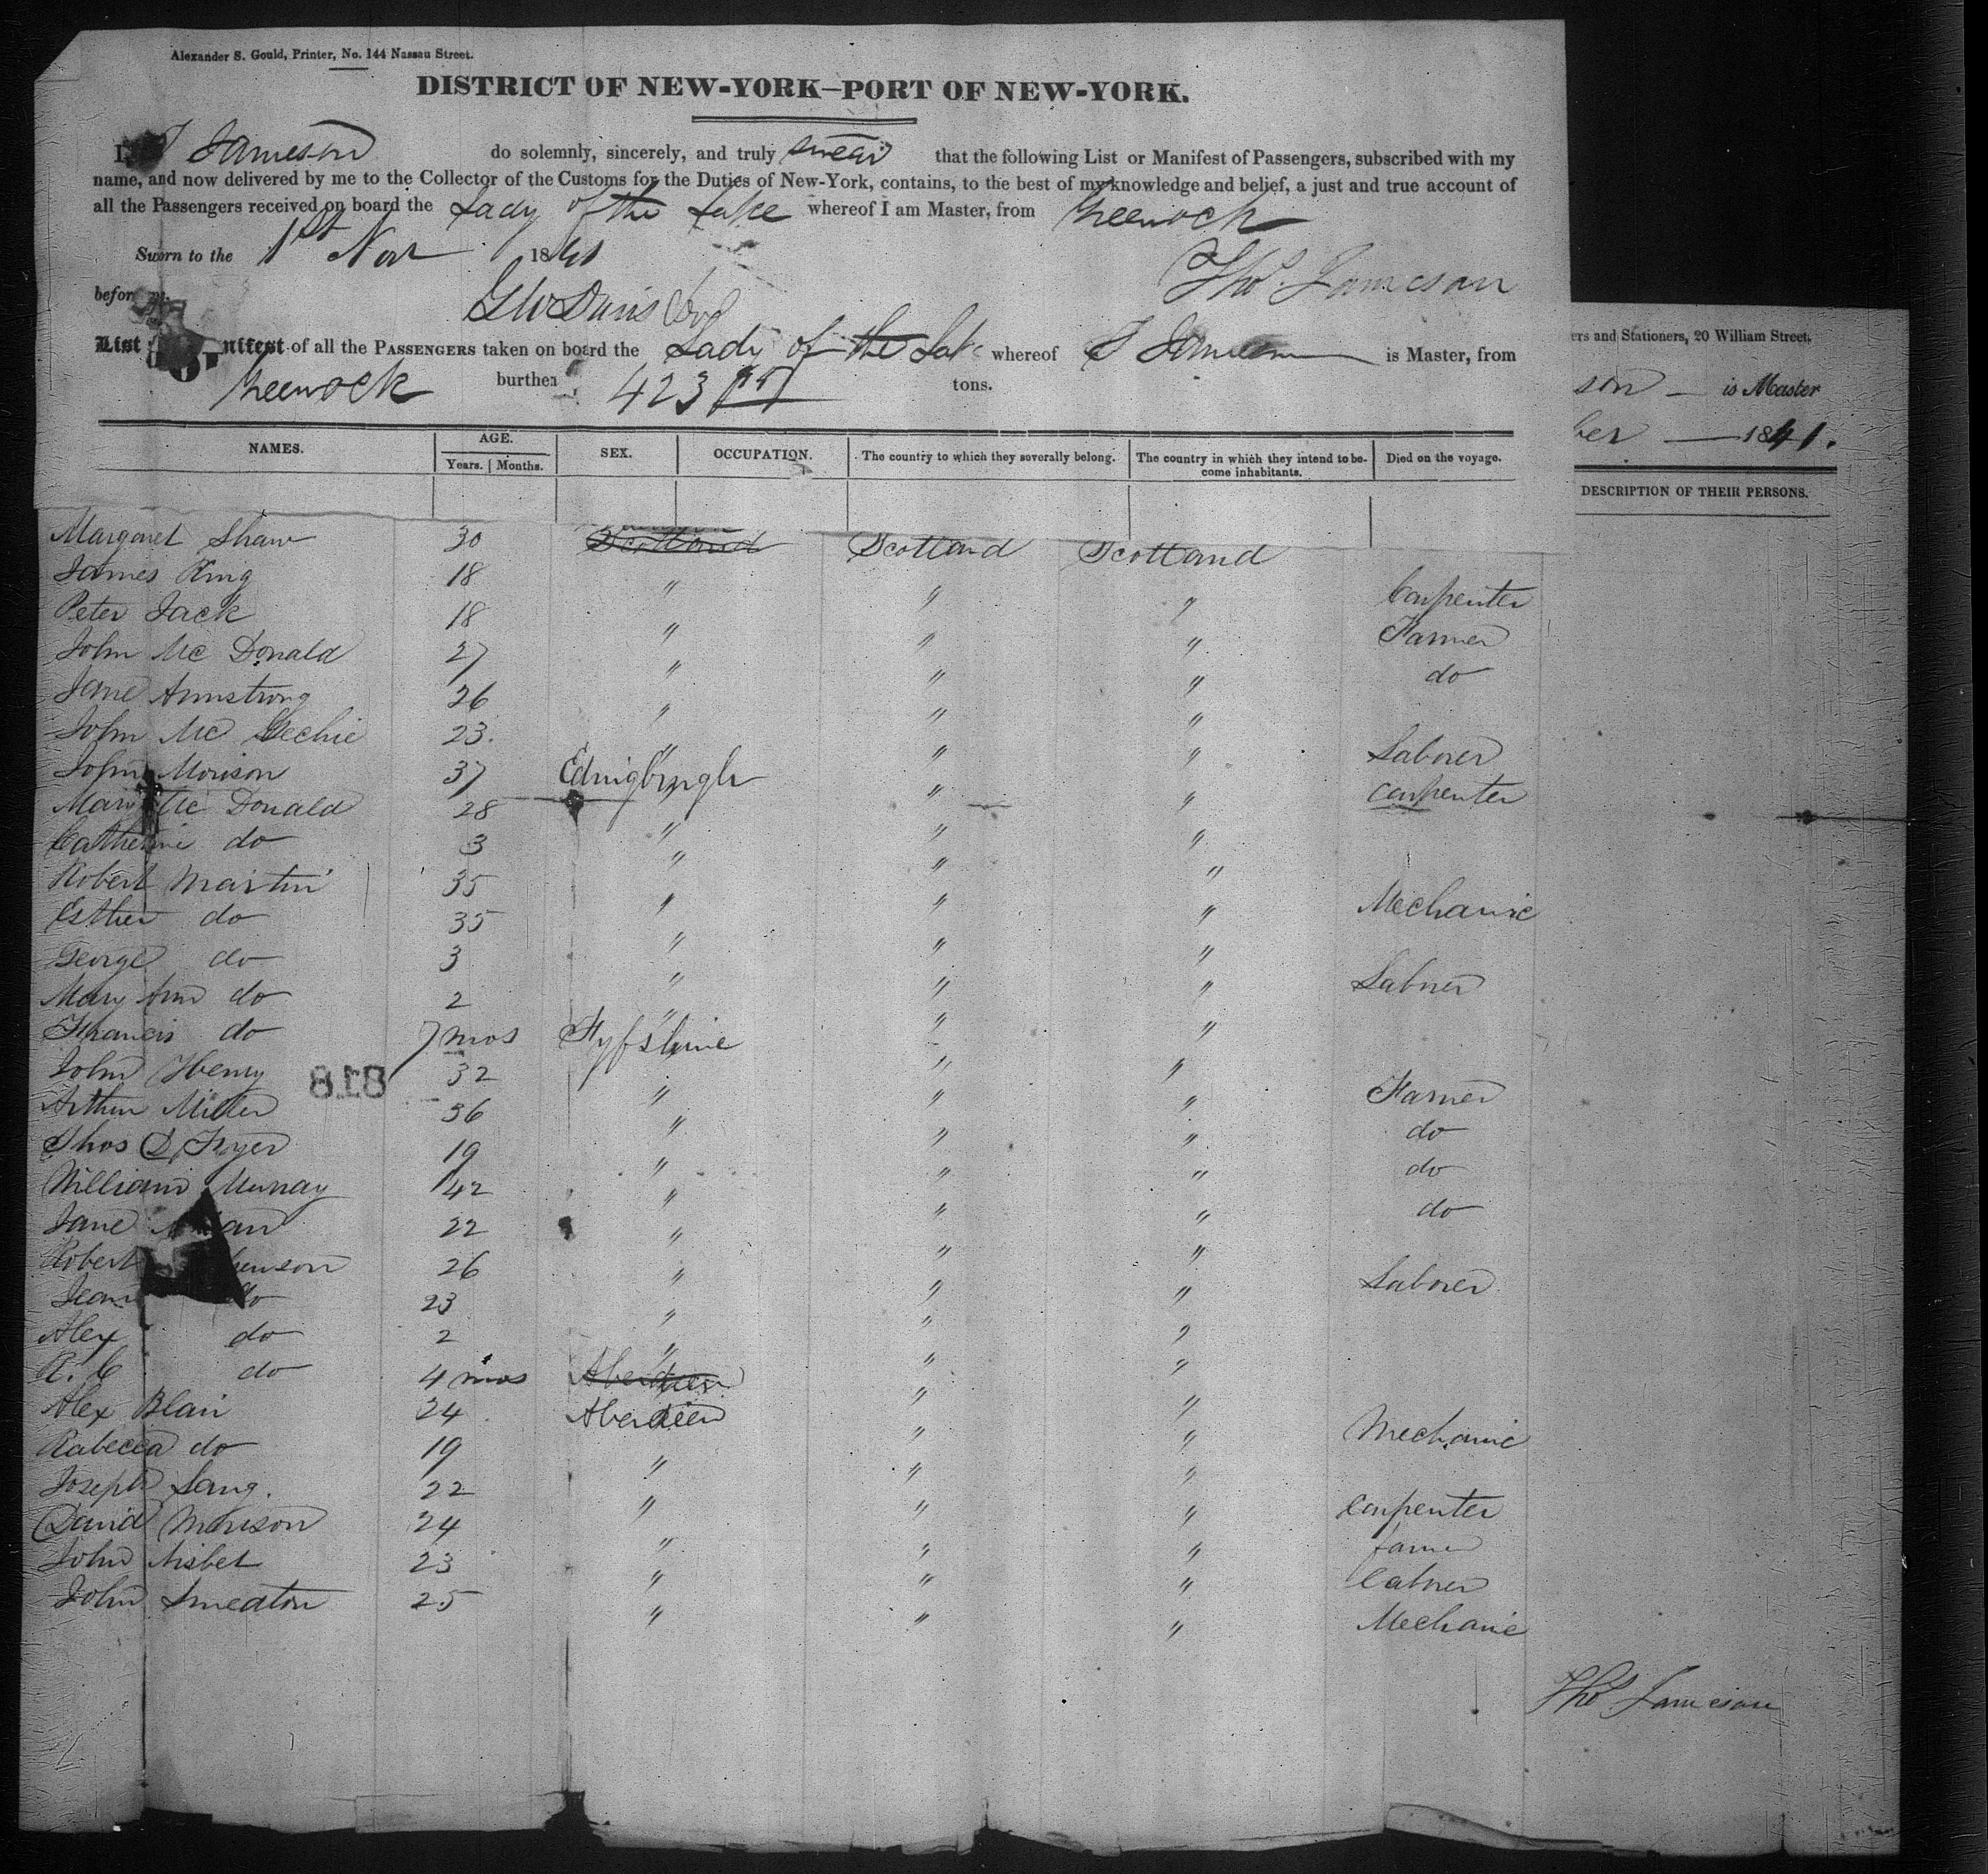 Alexander S. Gould, Printer, No. 144 Nassau Street.
DISTRICT OF NEW-YORK—PORT OF NEW-YORK.
I, T Jameson do solemnly, sincerely, and truly swear that the following List or Manifest of Passengers, subscribed with my
name, and now delivered by me to the Collector of the Customs for the Duties of New-York, contains, to the best of my knowledge and belief, a just and true account of
all the Passengers received on board the Lady of the Lake whereof I am Master, from Greenock
Sworn to the 1st Nov 1841
Thos Jameson
before me.
G W Davis
List nifest of all the PASSENGERS taken on board the Lady of the Lake whereof T Jameson is Master, from
Greenock burthen 423 tons.
ers and Stationers, 20 William Street.
son — is Master
ber — 1841.
NAMES. AGE. Years. Months. SEX. OCCUPATION. The country to which they severally belong. The country in which they intend to become inhabitants. Died on the voyage.
DESCRIPTION OF THEIR PERSONS.
Margaret Shaw 30 Scotland Scotland Scotland
James King 18 " " " Carpenter
Peter Jack 18 " " " Farmer
John Mc Donald 27 " " " do
Jane Armstrong 26 " " "
John Mc Gechie 23. " " " Laborer
John Morison 37 " " Carpenter
Mary Mc Donald 28 " " "
Catherine do 3 " " "
Robert Martin 35 " " " Mechanic
Esther do 35 " " "
George do 3 " " " Labrer
Mary Ann do 2 " " "
Francis do 7 mos " "
John Henry 32 " " " Farmer
Arthur Miller 36 " " " do
Thos D Fryer 19 " " " do
William Murray 42 " " " do
Jane 22 " " "
Robert 26 " " " Laborer
Jean do 23 " " "
Alex do 2 " " "
R. C do 4 mos Aberdeen " "
Alex Blair 24 Aberdeen " " Mechanic
Rabecca do 19 " " "
Joseph Lang. 22 " " " Carpenter
David Morison 24 " " " farmer
John Nisbet 23 " " " Labrer
John Smeaton 25 " " " Mechanic
818
Thos Jameson